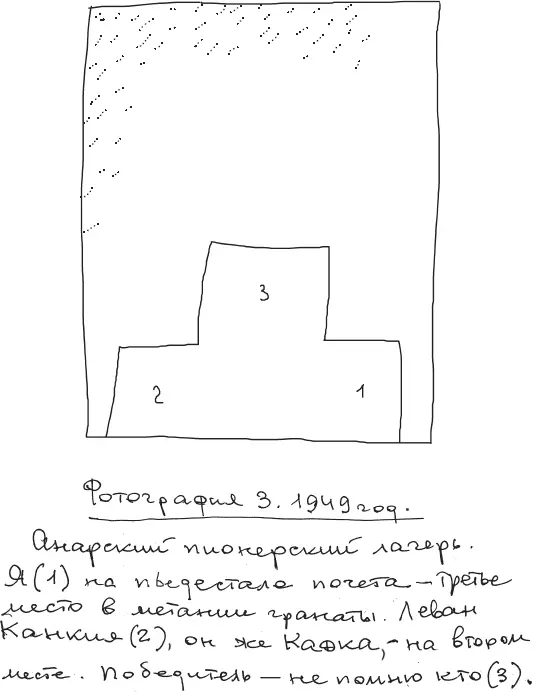 3
2
1
Фотография 3. 1949 год.
Анарский пионерский лагерь.
Я (1) на пьедестале почета – третье
место в метании гранаты. Леван
Канкия (2), он же Кафка, – на втором
месте. Победитель – не помню кто (3).